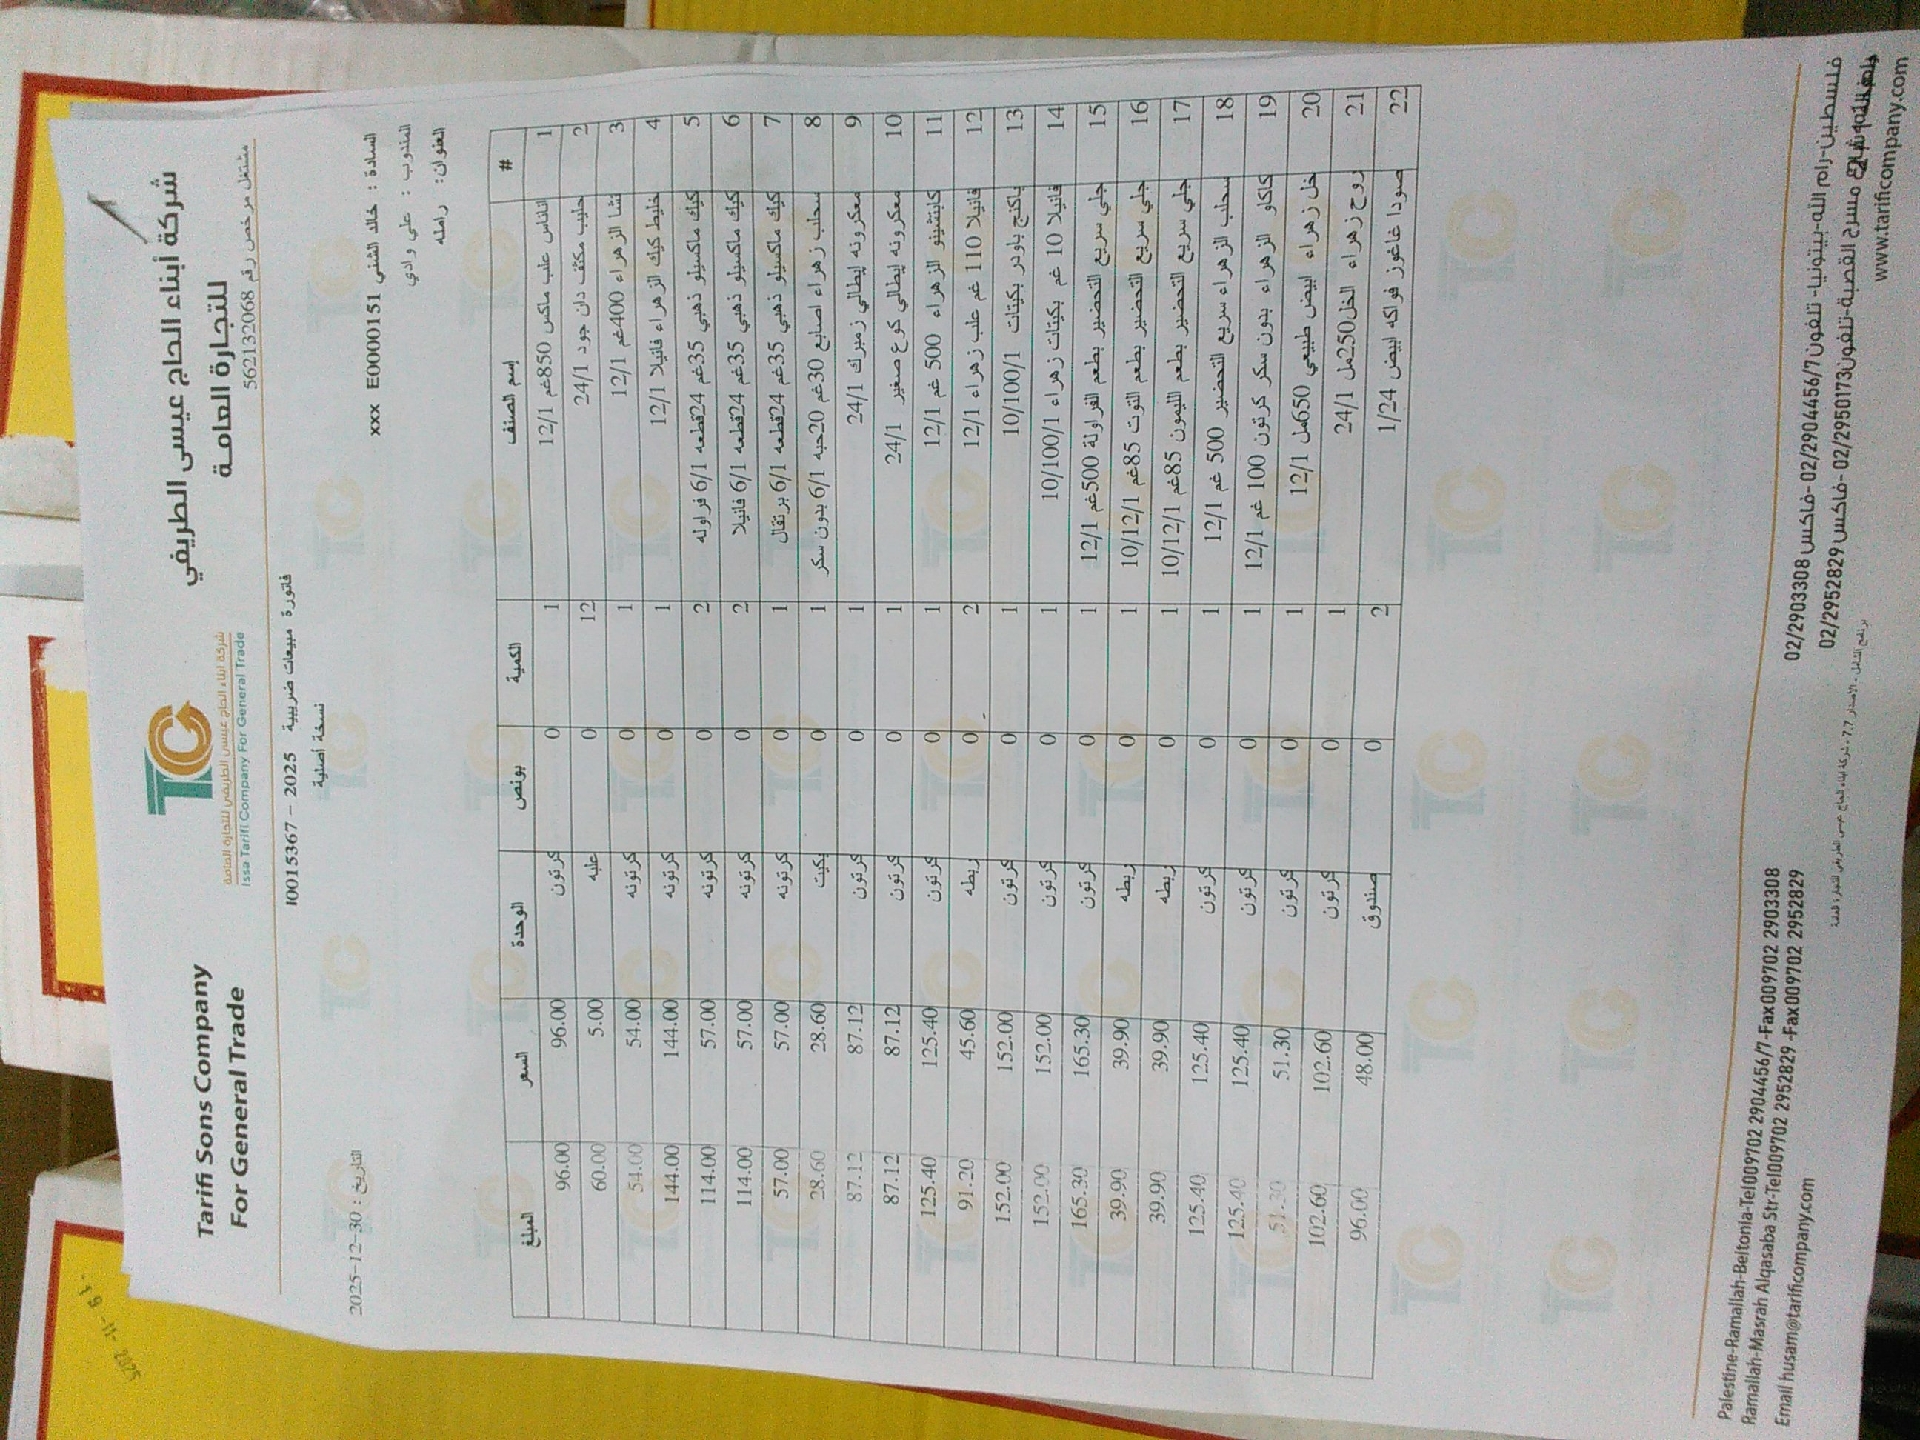 Tarifi Sons Company
For General Trade
شركة ابناء الحاج عيسى الطريفي
للتجارة العامة
مشتغل مرخص رقم 562132068
TC
شركة ابناء الحاج عيسى الطريفي للتجارة العامة
Issa Tarifi Company For General Trade
فاتورة مبيعات ضريبية 2025 - I0015367
نسخة أصلية
السادة : خالد الشني E0000151 xxx
التاريخ : 30-12-2025
المندوب : علي وادي
العنوان: رامله
# إسم الصنف الكمية بونص الوحدة السعر المبلغ
1 اناناس علب ماكس 850غم 12/1 1 0 كرتون 96.00 96.00
2 حليب مكثف دان جود 24/1 12 0 علبه 5.00 60.00
3 نشا الزهراء 400غم 12/1 1 0 كرتونه 54.00 54.00
4 خليط كيك الزهراء فانيلا 12/1 1 0 كرتونه 144.00 144.00
5 كيك ماكسيلو ذهبي 35غم 24قطعه 6/1 فراوله 2 0 كرتونه 57.00 114.00
6 كيك ماكسيلو ذهبي 35غم 24قطعه 6/1 فانيلا 2 0 كرتونه 57.00 114.00
7 كيك ماكسيلو ذهبي 35غم 24قطعه 6/1 برتقال 1 0 كرتونه 57.00 57.00
8 سحلب زهراء اصابع 30غم 20حبه 6/1 بدون سكر 1 0 بكيت 28.60 28.60
9 معكرونه ايطالي زمبرك 24/1 1 0 كرتون 87.12 87.12
10 معكرونه ايطالي كوع صغير 24/1 1 0 كرتون 87.12 87.12
11 كابتشينو الزهراء 500 غم 12/1 1 0 كرتون 125.40 125.40
12 فانيلا 110 غم علب زهراء 12/1 2 0 ربطه 45.60 91.20
13 باكنج باودر بكيتات 10/100/1 1 0 كرتون 152.00 152.00
14 فانيلا 10 غم بكيتات زهراء 10/100/1 1 0 كرتون 152.00 152.00
15 جلي سريع التحضير بطعم الفراولة 500غم 12/1 1 0 كرتون 165.30 165.30
16 جلي سريع التحضير بطعم التوت 85غم 10/12/1 1 0 ربطه 39.90 39.90
17 جلي سريع التحضير بطعم الليمون 85غم 10/12/1 1 0 ربطه 39.90 39.90
18 سحلب الزهراء سريع التحضير 500 غم 12/1 1 0 كرتون 125.40 125.40
19 كاكاو الزهراء بدون سكر كرتون 100 غم 12/1 1 0 كرتون 125.40 125.40
20 خل زهراء ابيض طبيعي 650مل 12/1 1 0 كرتون 51.30 51.30
21 روح زهراء الخل250مل 24/1 1 0 كرتون 102.60 102.60
22 صودا غاغوز فواكه ابيض 1/24 2 0 صندوق 48.00 96.00
Palestine-Ramallah-Beitonia-Tel009702 2904456/7-Fax009702 2903308
Ramallah-Masrah Alqasaba Str-Tel009702 2952829 -Fax009702 2952829
Email husam@tarificompany.com
فلسطين-رام الله-بيتونيا- تلفون02/2904456/7 فاكس-02/2903308
مسرح القصبة-تلفون02/2950173 -فاكس02/2952829
www.tarificompany.com
2025-11-19